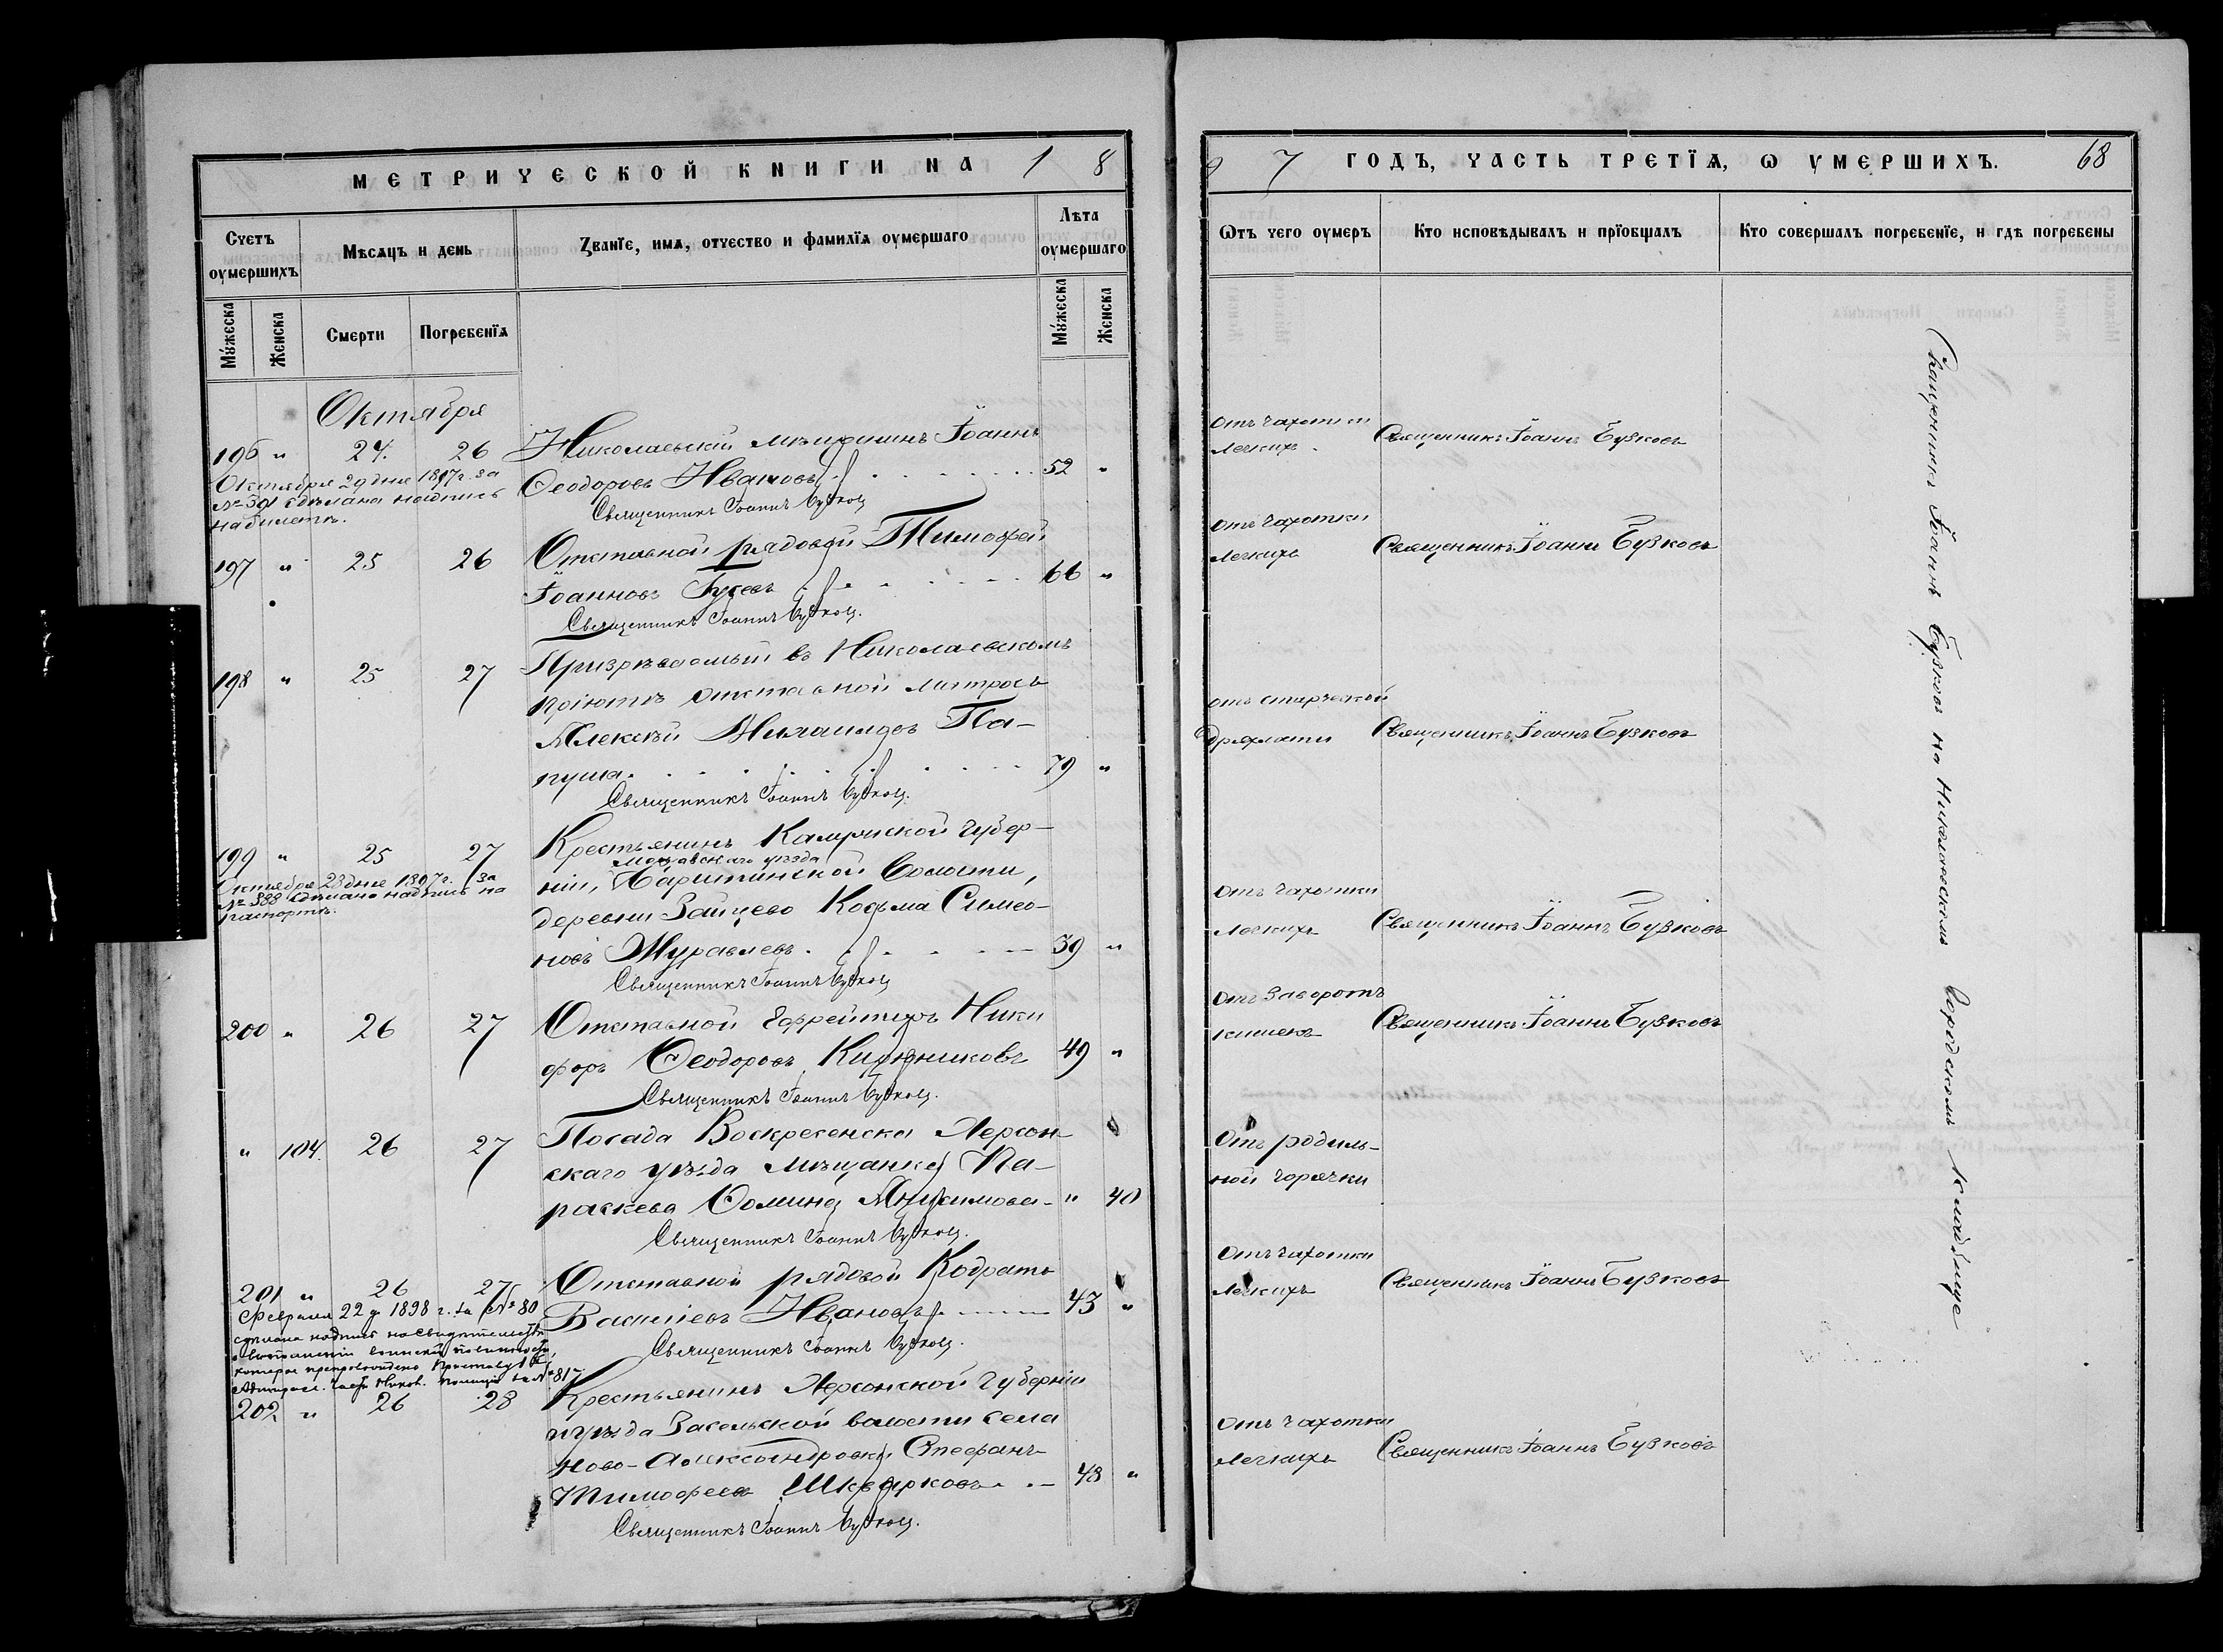 МЕТРИЧЕСКОЙ КНИГИ НА 1 8
Счетъ оумершихъ
Мѣсяцъ и день
Званїе, имя, отчество и фамилїя оумершаго
Лѣта оумершаго
Мужеска
Женска
Смерти
Погребенїя
Мужеска
Женска
Октября
196 " 24. 26 Николаевскій мѣщанинъ Іоаннъ
Ѳеодоровъ Ивановъ 52 "
Октября 29 дня 1897 г. за
№ 391 сдѣлана надпись
на билетѣ.
Священникъ Іоаннъ Бузковъ
197 " 25 26 Отставной рядовой Тимофей
Іоанновъ Гусевъ 66 "
Священникъ Іоаннъ Бузковъ.
198 " 25 27 Призрѣваемый въ Николаевскомъ
пріютѣ отставной матросъ
Алексѣй Михаиловъ Па-
пуша 79 "
Священникъ Іоаннъ Бузковъ.
199 " 25 27 Крестьянинъ Калужской губер-
ніи, волости,
уѣзда
деревни Зайцево Косьма Симео-
новъ Журавлевъ 39 "
Октября 28 дня 1897 г. за
№ 388 сдѣлана надпись на
паспортѣ.
Священникъ Іоаннъ Бузковъ
200 " 26 27 Отставной Ефрейторъ Ники
форъ Ѳеодоровъ 49 "
Священникъ Іоаннъ Бузковъ.
" 104. 26 27 Посада Воскресенска Херсон-
скаго уѣзда мѣщанка Па-
раскева Ѳомина Анисимова - " 40
Священникъ Іоаннъ Бузковъ.
201 " 26 27 Отставной рядовой Кодратъ
Василіевъ Ивановъ 43 "
Февраля 22 д. 1898 г. за № 80
сдѣлана надпись на свидѣтельствѣ
Священникъ Іоаннъ Бузковъ.
202 " 26 28 Крестьянинъ Херсонской губерніи
и уѣзда Засельской волости села
Ново-Александровки Стефанъ
Тимофеевъ Шкварковъ 48 "
Священникъ Іоаннъ Бузковъ.
9 7 ГОДЪ, ЧАСТЬ ТРЕТЇЯ, Ѡ УМЕРШИХЪ. 68
Ѡтъ чего оумеръ
Кто исповѣдывалъ и прїобщалъ
Кто совершалъ погребенїе, и гдѣ погребены
отъ чахотки
легкихъ. Священникъ Іоаннъ Бузковъ
отъ чахотки
легкихъ Священникъ Іоаннъ Бузковъ
отъ старческой
дряхлости Священникъ Іоаннъ Бузковъ
отъ чахотки
легкихъ Священникъ Іоаннъ Бузковъ
отъ заворотъ
кишекъ Священникъ Іоаннъ Бузковъ
отъ родиль-
ной горячки
отъ чахотки
легкихъ Священникъ Іоаннъ Бузковъ
отъ чахотки
легкихъ Священникъ Іоаннъ Бузковъ
Священникъ Іоаннъ Бузковъ на Николаевскомъ городскомъ кладбище